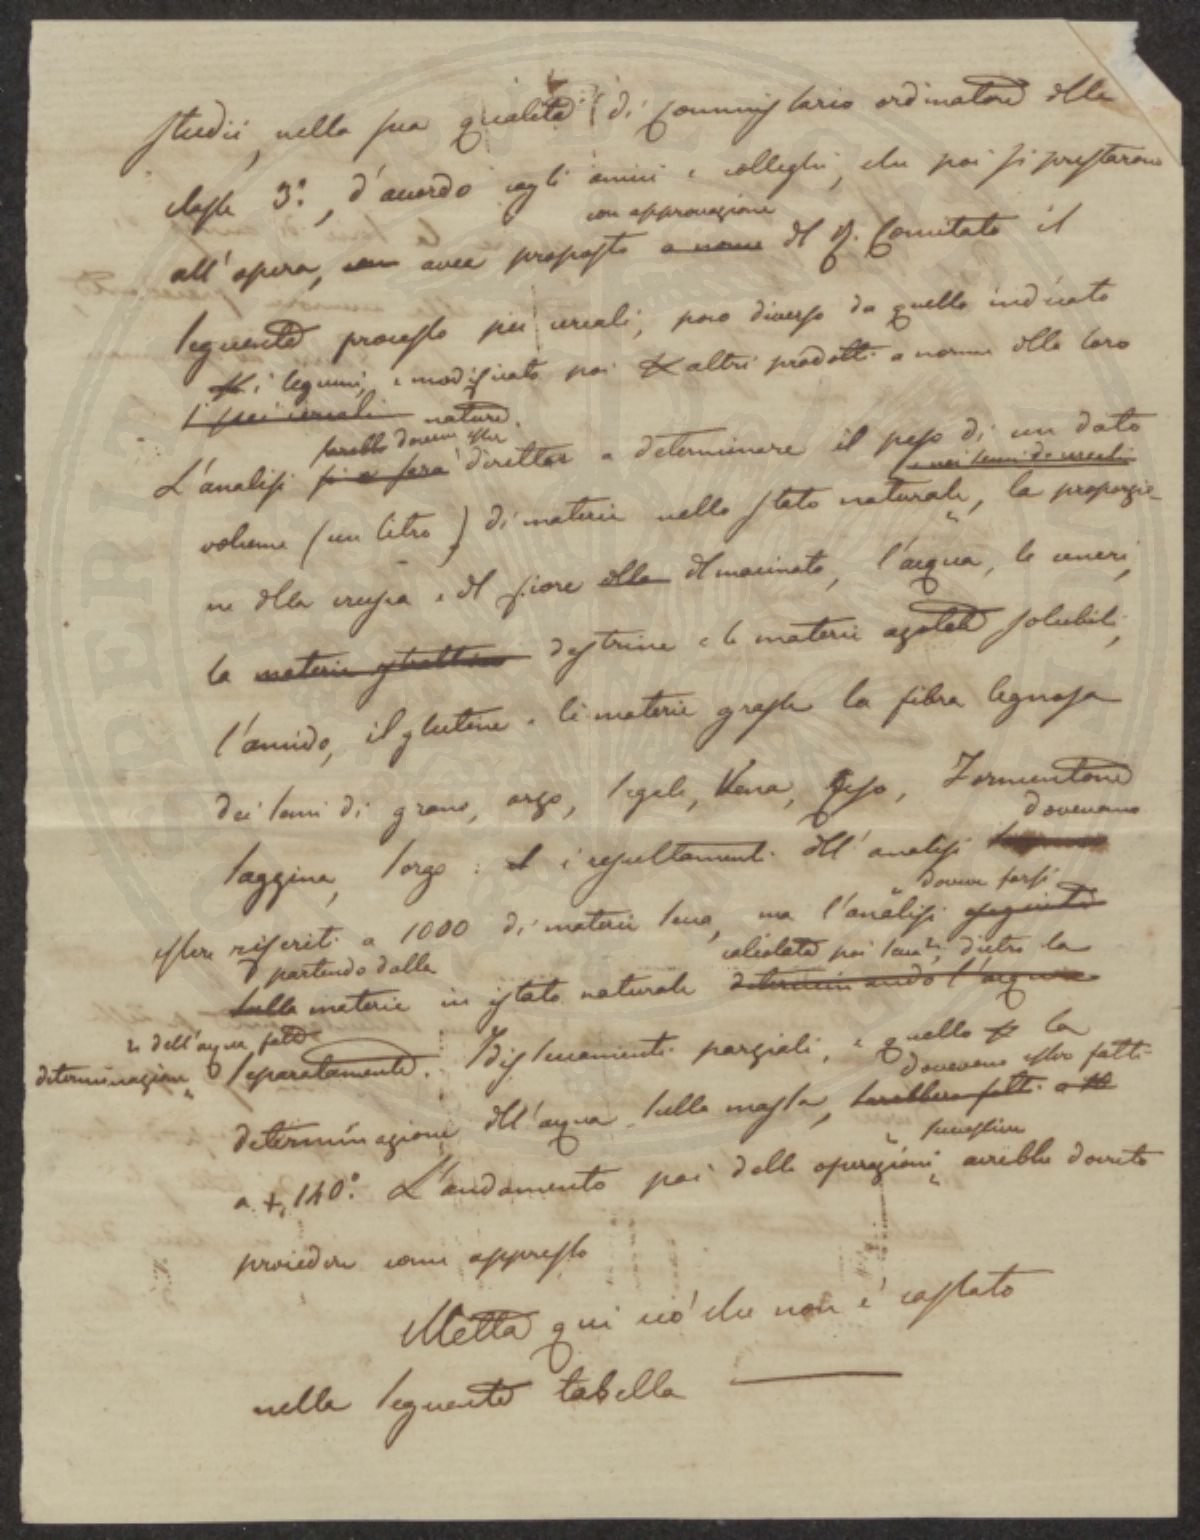 studii, nella sua qualità di Commissario ordinatore della
classe 3.ª, d'accordo cogli amici e colleghi, che poi si prestarono
con approvazione
all'opera, avea proposto a nome del R. Comitato il
seguente processo pei cereali, poco diverso da quello indicato
i legumi, e modificato poi altri prodotti a norma della loro
i pei cereali natura.
sarebbe dovuta esser
L'analisi si e sarà diretta a determinare il peso di un dato
e nei semi de cereali
volume (un litro) di materia nello stato naturale, la proporzio-
ne della crusca e del fiore della del macinato, l'acqua, le ceneri,
la materia estrattiva destrina e le materie azotate solubili,
l'amido, il glutine e le materie grasse la fibra legnosa
dei semi di grano, orzo, segale, Vena, Riso, Formentone
dovevano
saggina, sorgo: i resultamenti dell'analisi
dovea farsi
essere riferiti a 1000 di materia secca, ma l'analisi eseguita
partendo dalla calcolata poi secca, dietro la
sulla materia in istato naturale determinando l'acqua
dell'acqua fatta
determinazione separatamente. I disseccamenti parziali, e quello la
dovevano esser fatti
determinazione dell'acqua sulla massa, sarebbero fatti a
successive
a + 140°. L'andamento poi delle operazioni avrebbe dovuto
procedere come appresso
Metta qui ciò che non è cassato
nella seguente tabella